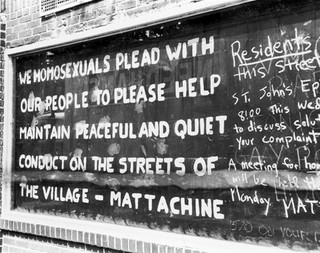 WE HOMOSEXUALS PLEAD WITH
OUR PEOPLE TO PLEASE HELP
MAINTAIN PEACEFUL AND QUIET
CONDUCT ON THE STREETS OF
THE VILLAGE – MATTACHINE
Residents
this Street
ST. John's/Ep
8:00 This We
to discuss solu
your complaint
A meeting for hom
will be
Monday MAT